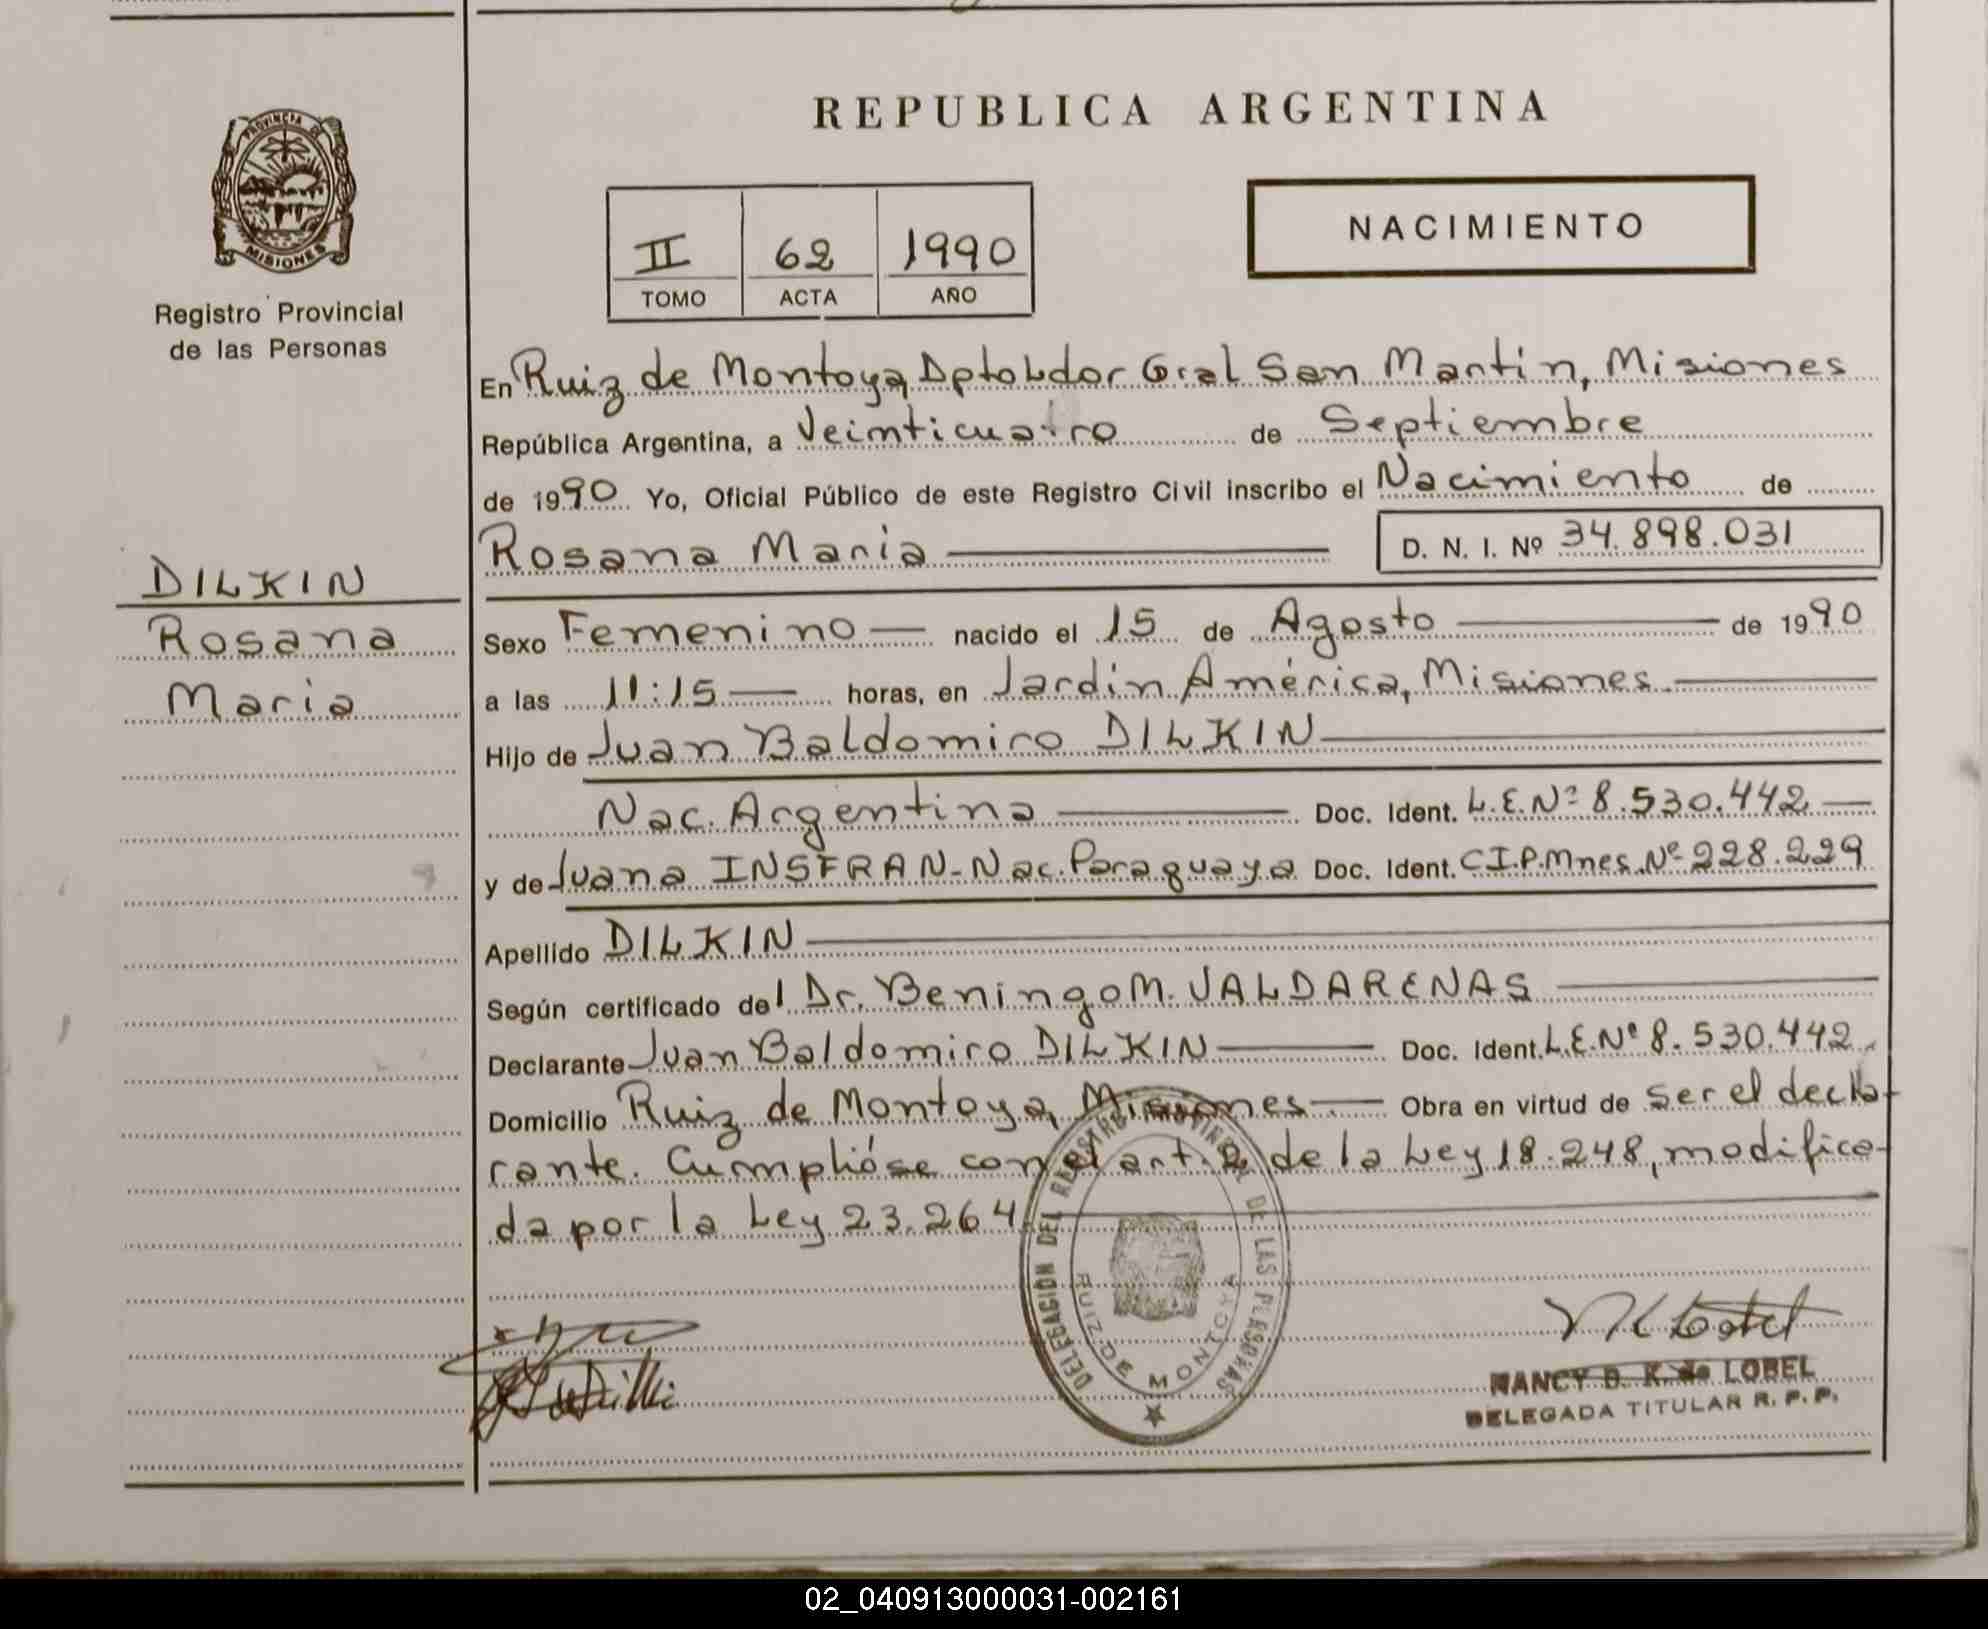 REPUBLICA ARGENTINA
PROVINCIA DE
MISIONES
Registro Provincial
de las Personas
II 62 1990
TOMO ACTA AÑO
NACIMIENTO
En Ruiz de Montoya, Dpto Ldor Gral San Martín, Misiones
República Argentina, a Veinticuatro de Septiembre
de 1990 Yo, Oficial Público de este Registro Civil inscribo el Nacimiento de
Rosana Maria D. N. I. Nº 34.898.031
DILKIN
Rosana
Maria
Sexo Femenino nacido el 15 de Agosto de 1990
a las 11:15 horas, en Jardín América, Misiones.
Hijo de Juan Baldomiro DILKIN
Nac. Argentina Doc. Ident. L.E.Nº 8.530.442
y de Juana INSFRAN - Nac. Paraguaya Doc. Ident. C.I.P.Mnes.Nº 228.229
Apellido DILKIN
Según certificado del Dr. Beningo M. VALDARENAS
Declarante Juan Baldomiro DILKIN Doc. Ident. L.E.Nº 8.530.442.
Domicilio Ruiz de Montoya, Misiones Obra en virtud de ser el decla-
rante. Cumplióse con el art. 2 de la Ley 18.248, modifica-
da por la Ley 23.264.
DELEGACIÓN DEL REGISTRO PROVINCIAL DE LAS PERSONAS
RUIZ DE MONTOYA
NANCY B. K. de LOBEL
DELEGADA TITULAR R. P. P.
02_040913000031-002161